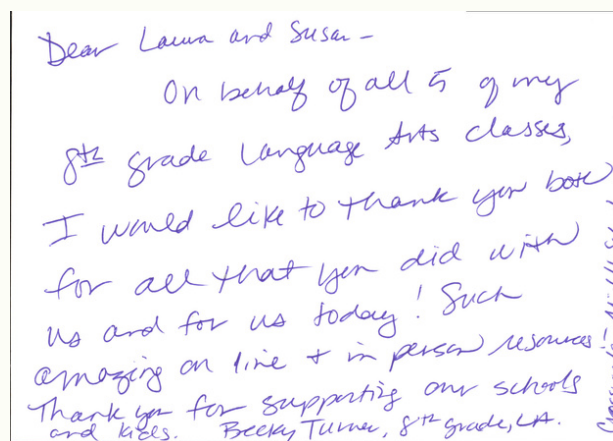 Dear Laura and Susan -
On behalf of all 5 of my
8th grade Language Arts classes,
I would like to thank you both
for all that you did with
us and for us today! Such
amazing on line + in person resources!
Thank you for supporting our schools
and kids. Becky Turner, 8th grade, LA.